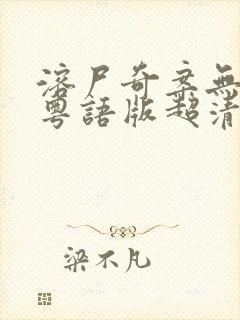 溶尸奇案無
粵語版超清
梁不凡